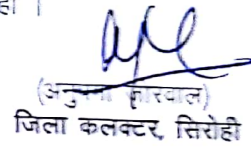 हो ।
(अनुपमा जोरवाल)
जिला कलक्टर, सिरोही